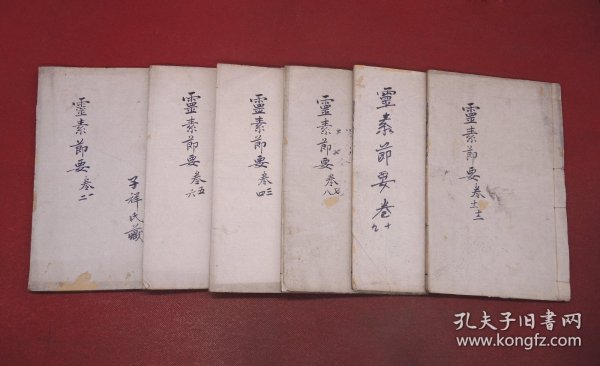 靈素節要卷一二
子祥氏藏
靈素節要卷五六
靈素節要卷三四
靈素節要卷七八
靈素節要卷十九
靈素節要卷十一十二
孔夫子旧书网
www.kongfz.com